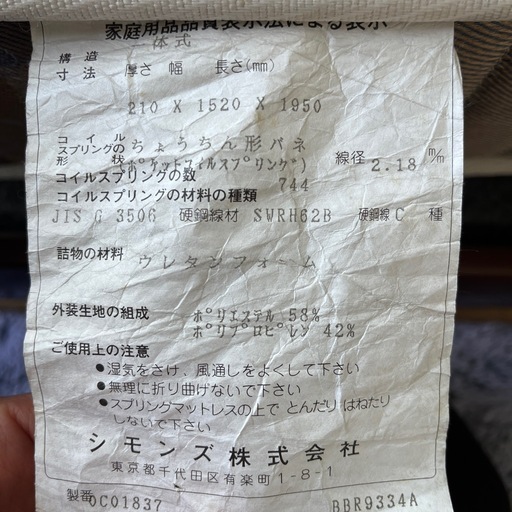 家庭用品品質表示法による表示
構造 一体式
寸法 厚さ 幅 長さ(mm)
210 X 1520 X 1950
コイルスプリングの形状 ちょうちん形バネ
(ポケットコイルスプリング) 線径 2.18 m/m
コイルスプリングの数 744
コイルスプリングの材料の種類
JIS G 3506 硬鋼線材 SWRH62B 硬鋼線C 種
詰物の材料
ウレタンフォーム
外装生地の組成 ポリエステル 58%
ポリプロピレン 42%
ご使用上の注意
●湿気をさけ、風通しをよくして下さい
●無理に折り曲げないで下さい
●スプリングマットレスの上で とんだり はねたり
しないで下さい
シモンズ株式会社
東京都千代田区有楽町1-8-1
製番 0C01837 BBR9334A